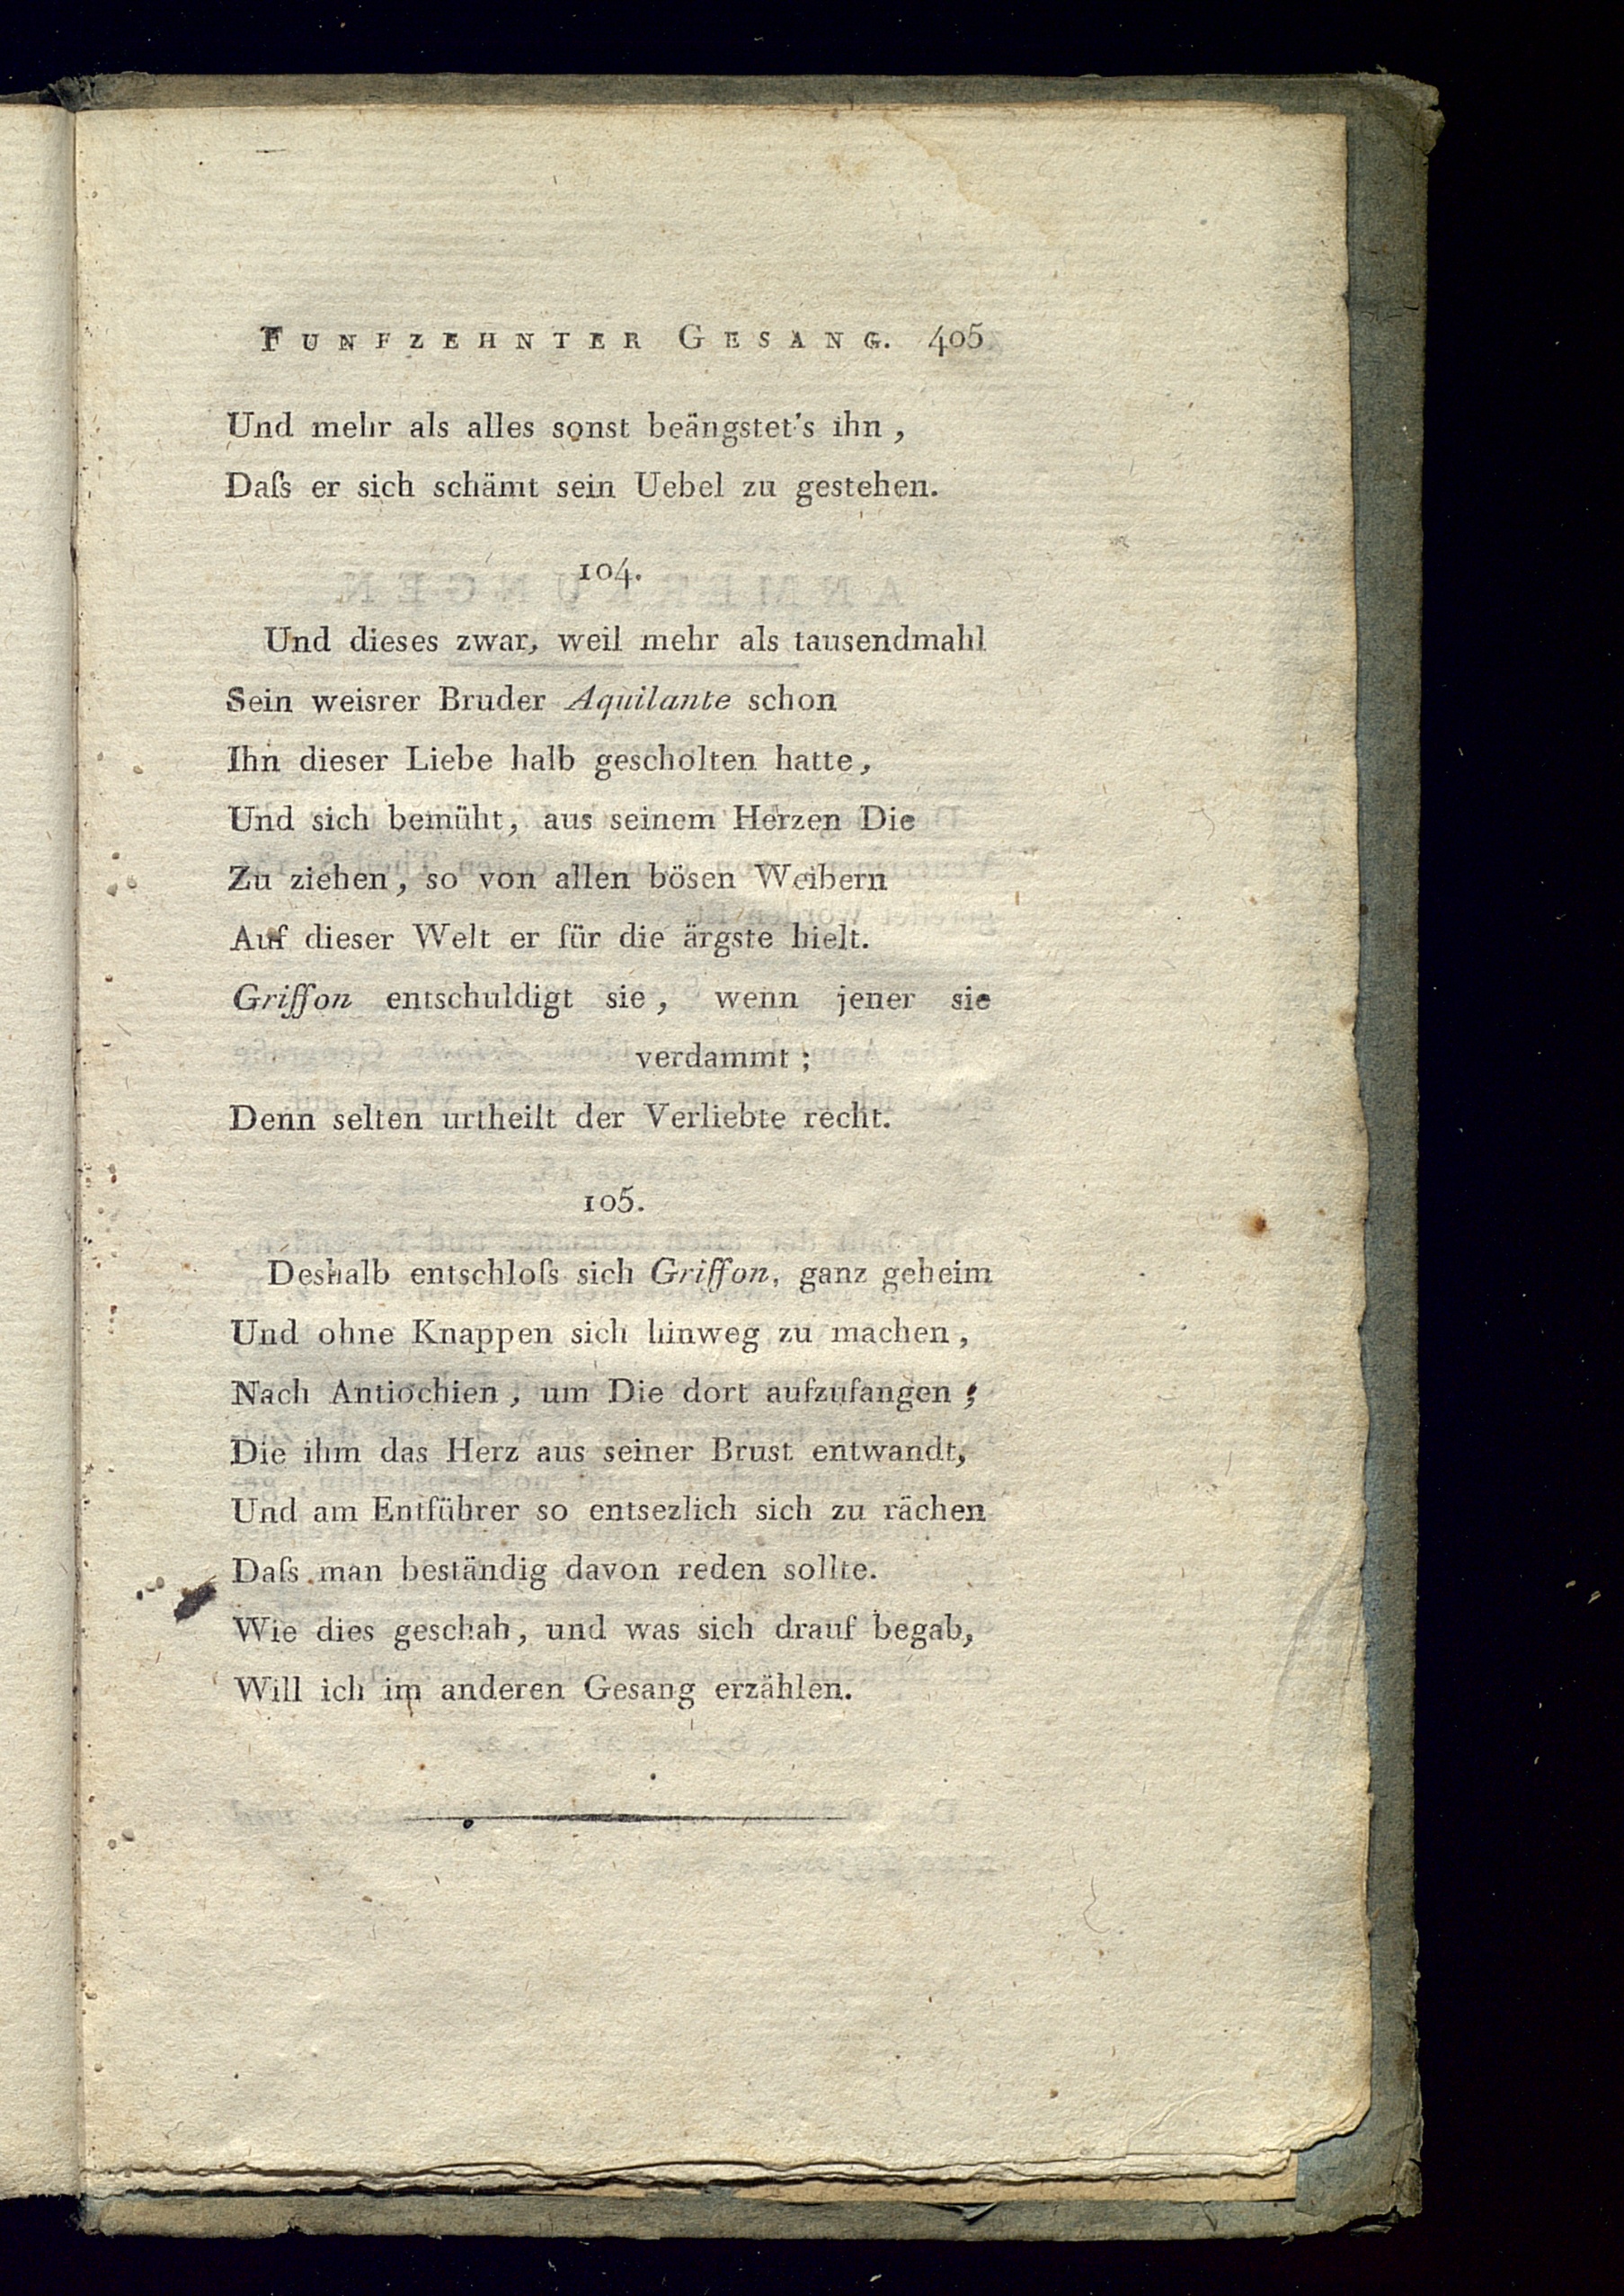 FUNFZEHNTER GESANG. 405
Und mehr als alles sonst beängstet's ihn,
Daſs er sich schämt sein Uebel zu gestehen.
104.
Und dieses zwar, weil mehr als tausendmahl
Sein weisrer Bruder Aquilante schon
Ihn dieser Liebe halb gescholten hatte,
Und sich bemüht, aus seinem Herzen Die
Zu ziehen, so von allen bösen Weibern
Auf dieser Welt er für die ärgste hielt.
Griffon entschuldigt sie, wenn jener sie
verdammt;
Denn selten urtheilt der Verliebte recht.
105.
Deshalb entschloſs sich Griffon, ganz geheim
Und ohne Knappen sich hinweg zu machen,
Nach Antiochien, um Die dort aufzufangen;
Die ihm das Herz aus seiner Brust entwandt,
Und am Entführer so entsezlich sich zu rächen
Daſs man beständig davon reden sollte.
Wie dies geschah, und was sich drauf begab,
Will ich im anderen Gesang erzählen.